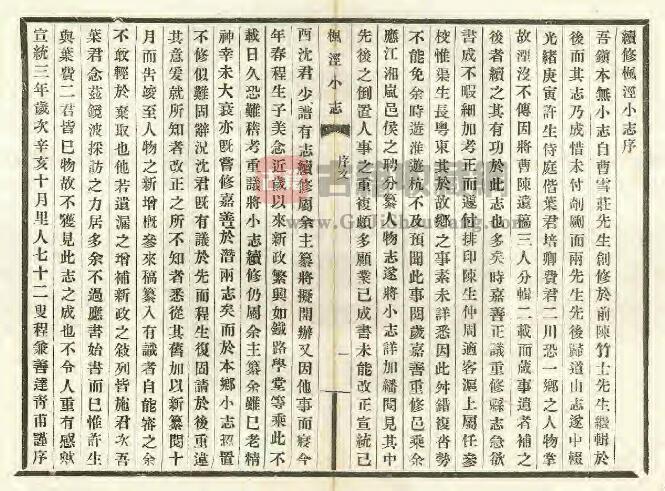 續修楓涇小志序
吾鎮本無小志自曹雪莊先生創修於前陳竹士先生繼輯於
後而其志乃成惜未付剞劂而兩先生先後歸道山志遂中輟
光緒庚寅許生侍庭偕葉君培卿費君二川恐一鄉之人物掌
故湮沒不傳因將曹陳遺稿三人分輯二載而蕆事遺者補之
後者續之其有功於此志也多矣時嘉善正議重修縣志急欲
書成不暇細加考正而遽付排印陳生仲周適客滬上屬任參
校惟渠生長粵東其於故鄉之事素未詳悉因此舛錯復沓勢
不能免余時遊淮遊杭不及預聞此事閱歲嘉善重修邑乘余
應江湘嵐邑侯之聘分纂人物志遂將小志詳加繙閱見其中
先後之倒置人事之重複頗多顧業已成書未能改正宣統己
楓涇小志
序文
一
酉沈君少譜有志續修屬余主纂將擬開辦又因他事而寢今
年春程生子美念近歲以來新政繁興如鐵路學堂等乘此不
載日久恐難稽考重議將小志續修仍屬余主纂余雖已老精
神幸未大衰亦既嘗修嘉善於潛兩志矣而於本鄉小志招置
不修似難固辭況沈君既有議於先而程生復固請於後重違
其意爰就所知者改正之所不知者悉從其舊加以新纂閱十
月而告竣至人物之新增概參來稿纂入有識者自能審之余
不敢輕於棄取也他若遺漏之增補新政之敘列皆施君次吾
葉君念玆鏡波採訪之力居多余不過應書始書而已惟許生
與葉費二君皆已物故不獲見此志之成也不令人重有感歟
宣統三年歲次辛亥十月里人七十二叟程兼善達青甫謹序
古籍收藏網
www.GuJiShouCang.com